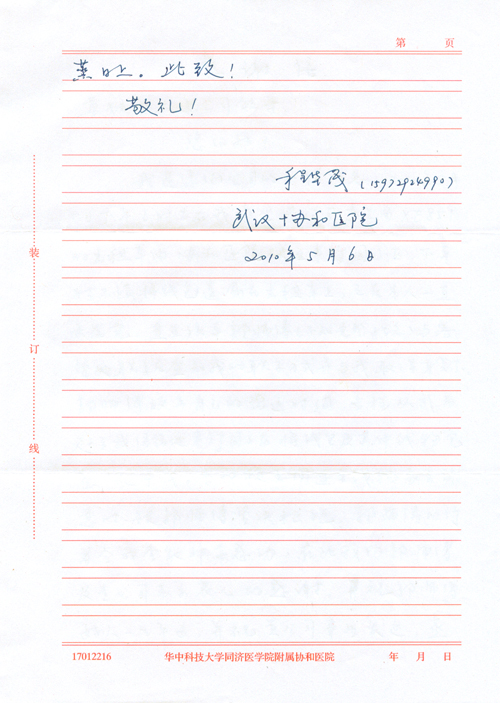 第 页
蒸日上。此致！
敬礼！
(15972924990)
武汉协和医院
2010年5月6日
装
订
线
17012216 华中科技大学同济医学院附属协和医院 年 月 日